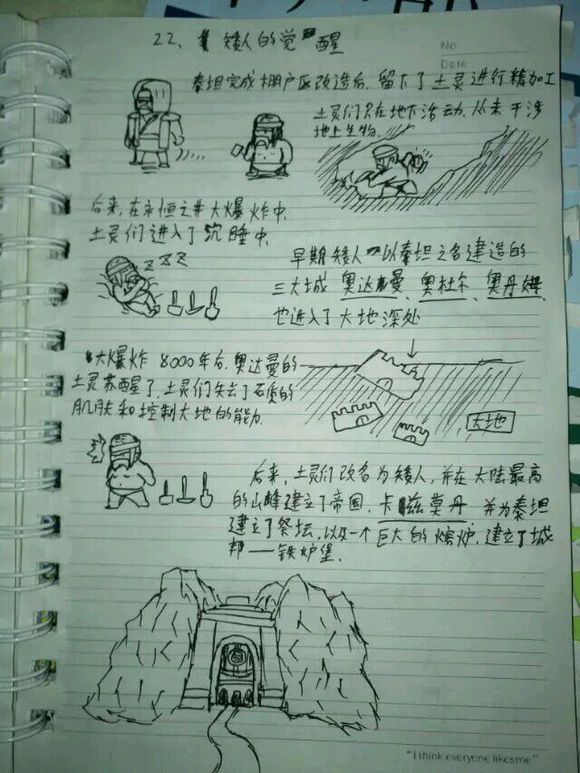 22、矮人的觉醒
No
Date
泰坦完成棚户区改造后，留下了土灵进行精加工
土灵们只在地下活动，从未干涉
地上生物.
后来，在永恒之井大爆炸中，
土灵们进入了沉睡中.
zzz
早期矮人以泰坦之名建造的
三大城 奥达曼、奥杜尔、奥丹姆.
也进入了大地深处
大爆炸8000年后，奥达曼的
土灵苏醒了，土灵们失去了石质的
肌肤和控制大地的能力.
大地
后来，土灵们改名为矮人，并在大陆最高
的山峰建立了帝国，卡兹莫丹 并为泰坦
建立了祭坛，以及一个巨大的熔炉，建立了城
邦——铁炉堡.
"I think everyone likes me"